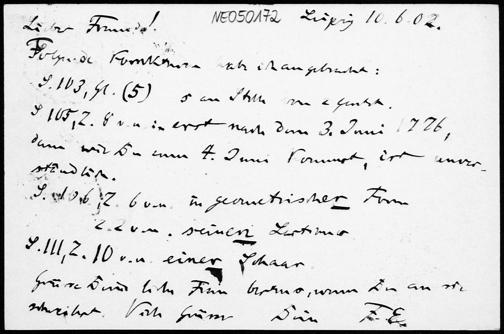 NE050172 Leipzig 10.6.02.
Lieber Freund!
Folgende Korrekturen habe ich angebracht:
S. 103, Gl. (5) s an Stelle von a gesetzt.
S. 105, Z. 6 v.u. ist erst nach dem 3. Juni 1776,
dann wie Du zum 4. Juni kommst, ist unver-
ständlich.
S. 106, Z. 6 v.u. in geometrischer Form
Z. 2 v.u. seinen
S. 111, Z. 10 v.u. einer Schaar
Grüsse Deine liebe Frau bestens, wenn Du an sie
schreibst. Viele Grüsse Dein F. E.